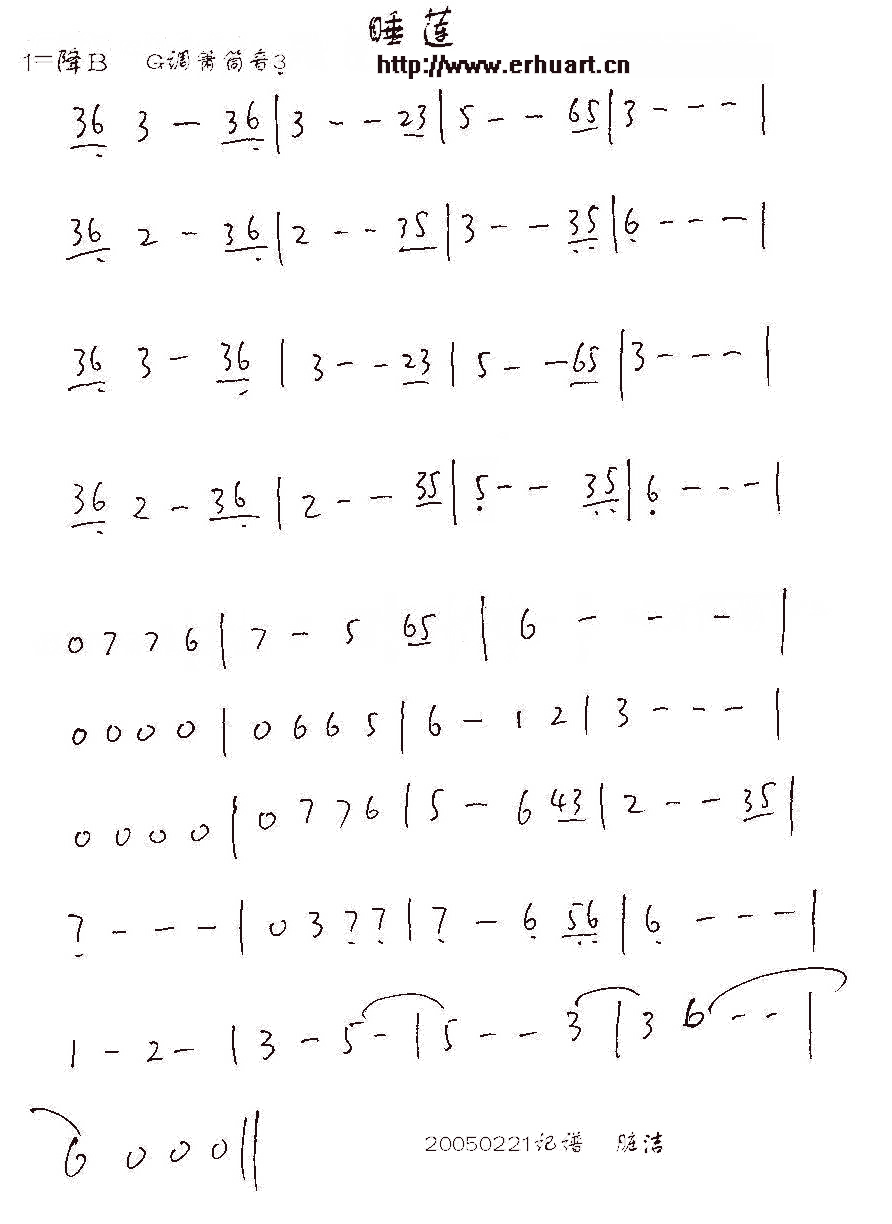 睡莲
1=降B G调箫筒音3
http://www.erhuart.cn
36 3 - 36 | 3 - - 23 | 5 - - 65 | 3 - - - |
36 2 - 36 | 2 - - 35 | 3 - - 35 | 6 - - - |
36 3 - 36 | 3 - - 23 | 5 - - 65 | 3 - - - |
36 2 - 36 | 2 - - 35 | 5 - - 35 | 6 - - - |
0 7 7 6 | 7 - 5 65 | 6 - - - |
0 0 0 0 | 0 6 6 5 | 6 - 1 2 | 3 - - - |
0 0 0 0 | 0 7 7 6 | 5 - 6 43 | 2 - - 35 |
7 - - - | 0 3 7 7 | 7 - 6 56 | 6 - - - |
1 - 2 - | 3 - 5 - | 5 - - 3 | 3 6 - - |
6 0 0 0 ||
20050221记谱 脏洁